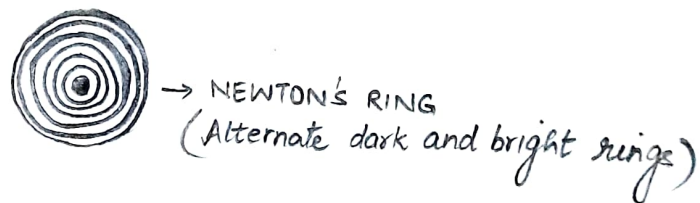 → NEWTON'S RING
(Alternate dark and bright rings)